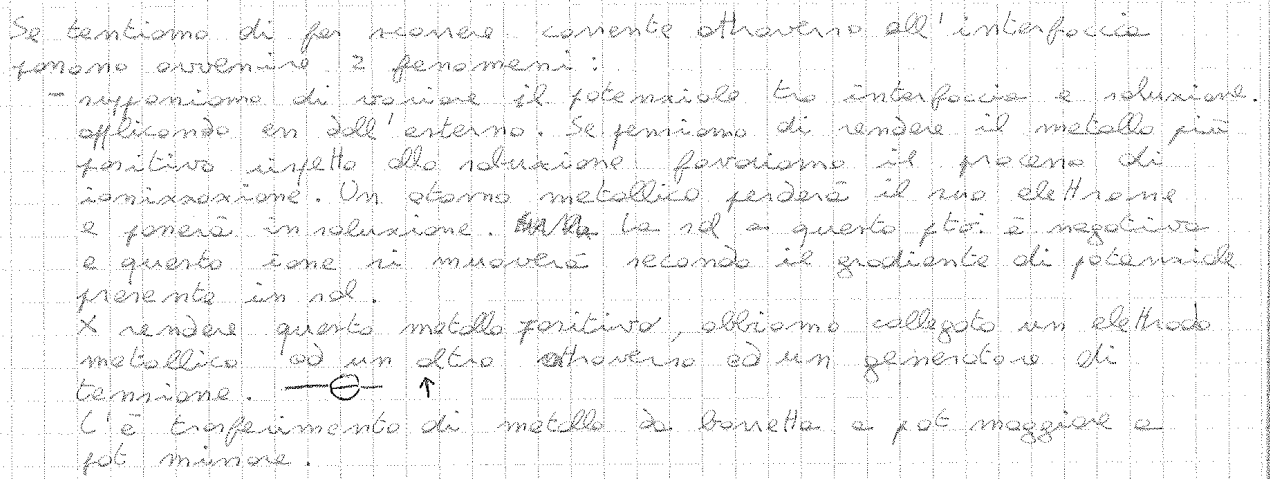 Se tentiamo di far scorrere corrente attraverso all'interfaccia
possono avvenire 2 fenomeni :
- supponiamo di variare il potenziale tra interfaccia e soluzione.
applicando en dall'esterno. Se pensiamo di rendere il metallo più
positivo rispetto alla soluzione favoriamo il processo di
ionizzazione. Un atomo metallico perderà il suo elettrone
e passerà in soluzione. La sol a questo pto. è negativa
e questo ione si muoverà secondo il gradiente di potenziale
presente in sol.
X rendere questo metallo positivo, abbiamo collegato un elettrodo
metallico ad un altro attraverso ad un generatore di
tensione.
C'è trasferimento di metallo da barretta a pot maggiore a
pot minore.